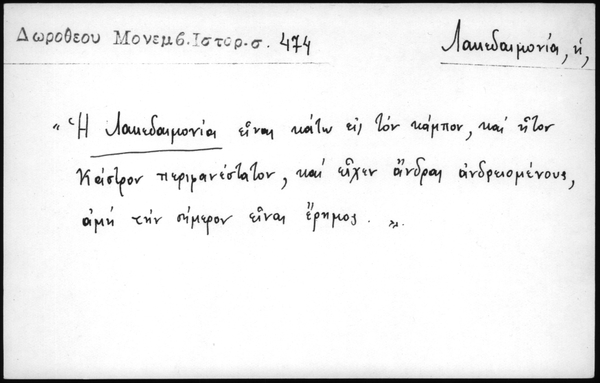 Δωροθεου Μονεμβ.Ιστορ.σ. 474
Λακεδαιμονία, ἡ,
"Ἡ Λακεδαιμονία εἶναι κάτω εἰς τόν κάμπον, καί ἦτον
Κάστρον περιφανέστατον, καί εἶχεν ἄνδρας ἀνδρειομένους,
ἀμή τήν σήμερον εἶναι ἔρημος. ".